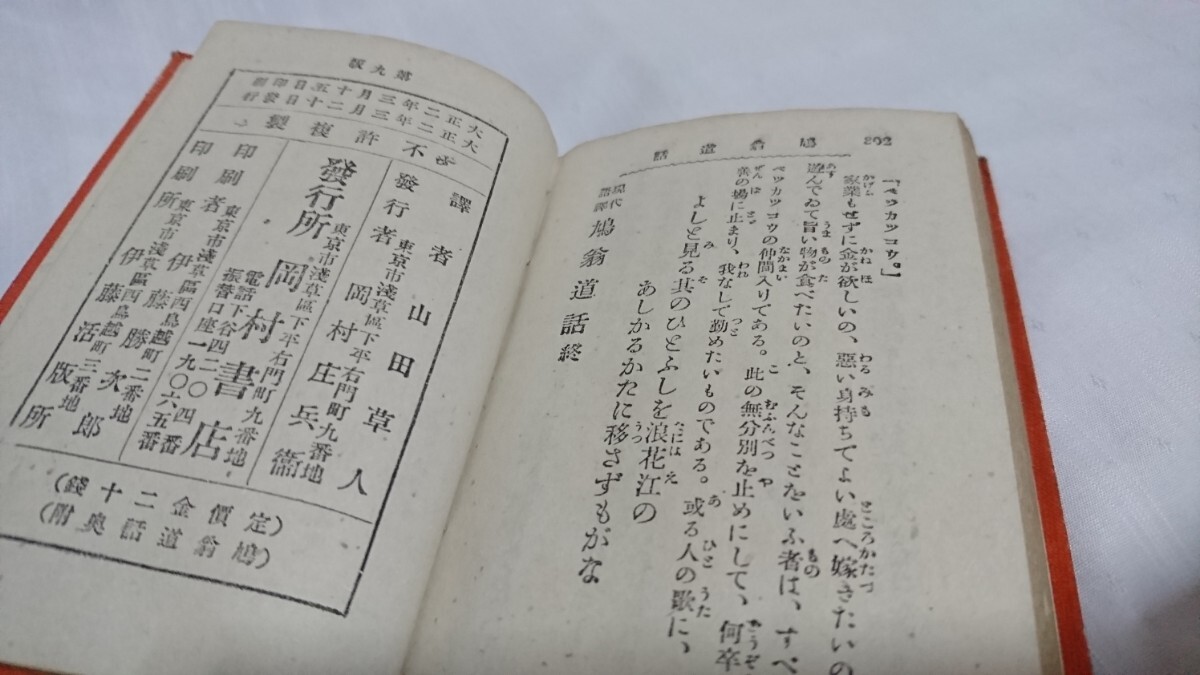 鳩翁道話
「ベツカツコウ。」
家業もせずに金が欲しいの、惡い身持ちでよい處へ嫁きたいの
遊んでゐて旨い物が食べたいのと、そんなことをいふ者は、すべ
ベツカツコウの仲間入りである。此の無分別を止めにして、何卒
善の場に止まり、我なしで勤めたいものである。或る人の歌に、
よしと見る其のひとふしを浪花江の
あしかるかたに移さずもがな
現代語譯 鳩翁道話終
第九版
大正二年三月十五日印刷
大正二年三月二十日發行
不許複製
譯者 山田草人
東京市淺草區下平右門町九番地
發行者 岡村庄兵衞
東京市淺草區下平右門町九番地
發行所 岡村書店
電話下谷四二〇四番
振替口座一九〇六五番
東京市淺草區西鳥越町二番地
印刷者 伊藤勝次郎
東京市淺草區西鳥越町三番地
印刷所 伊藤活版所
(定價金二十錢)
(鳩翁道話奥附)